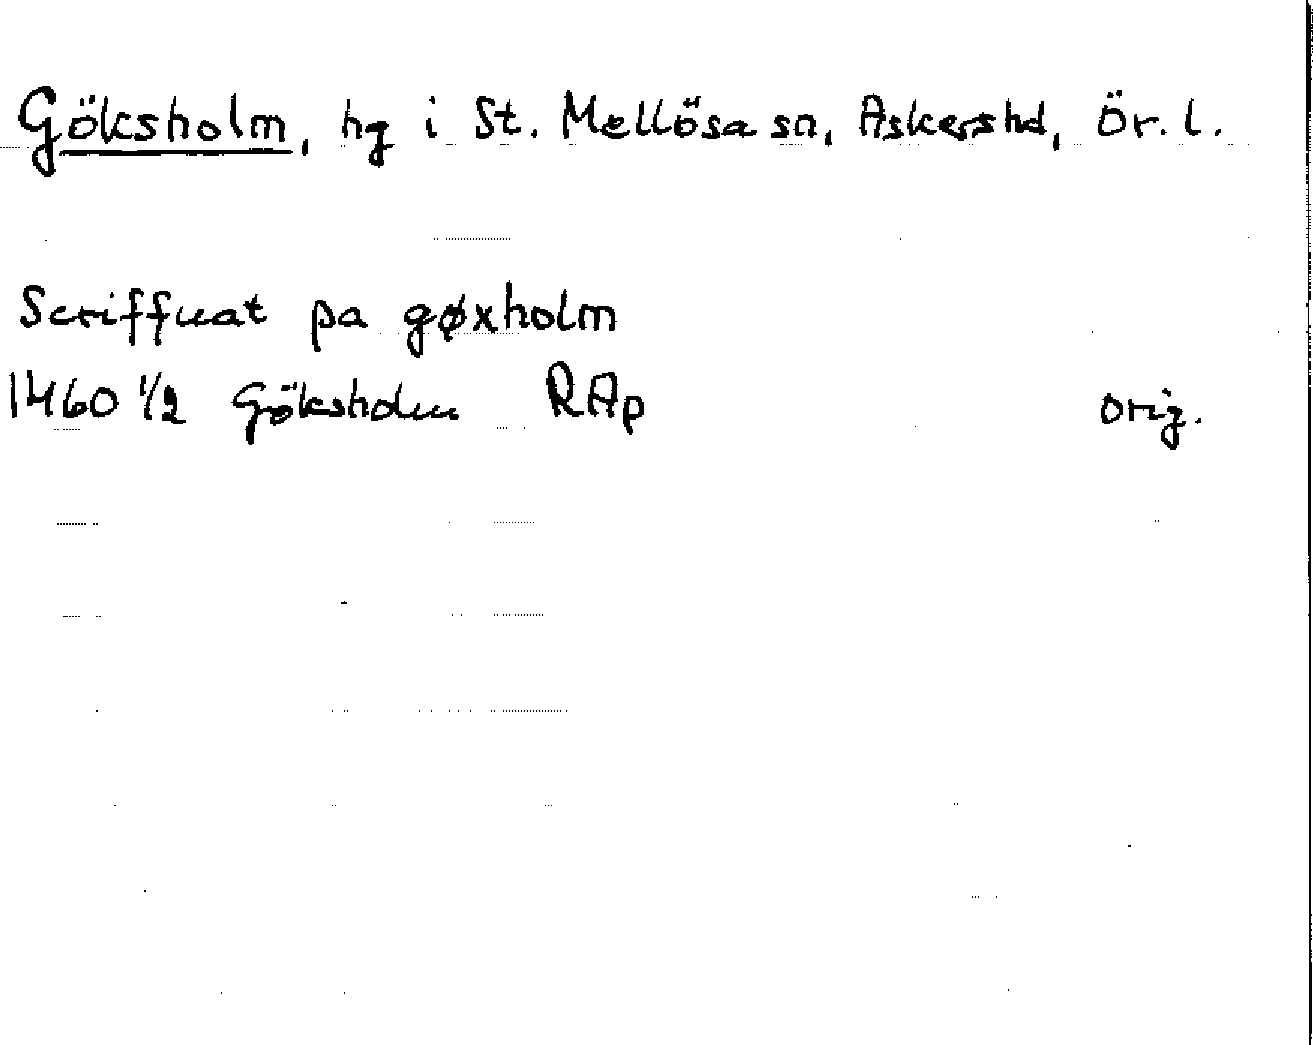 Göksholm, hg i St. Mellösa sn, Askers hd, Ör. l.
Scriffuat pa gøxholm
1460 1/2 Göksholm RAp orig.